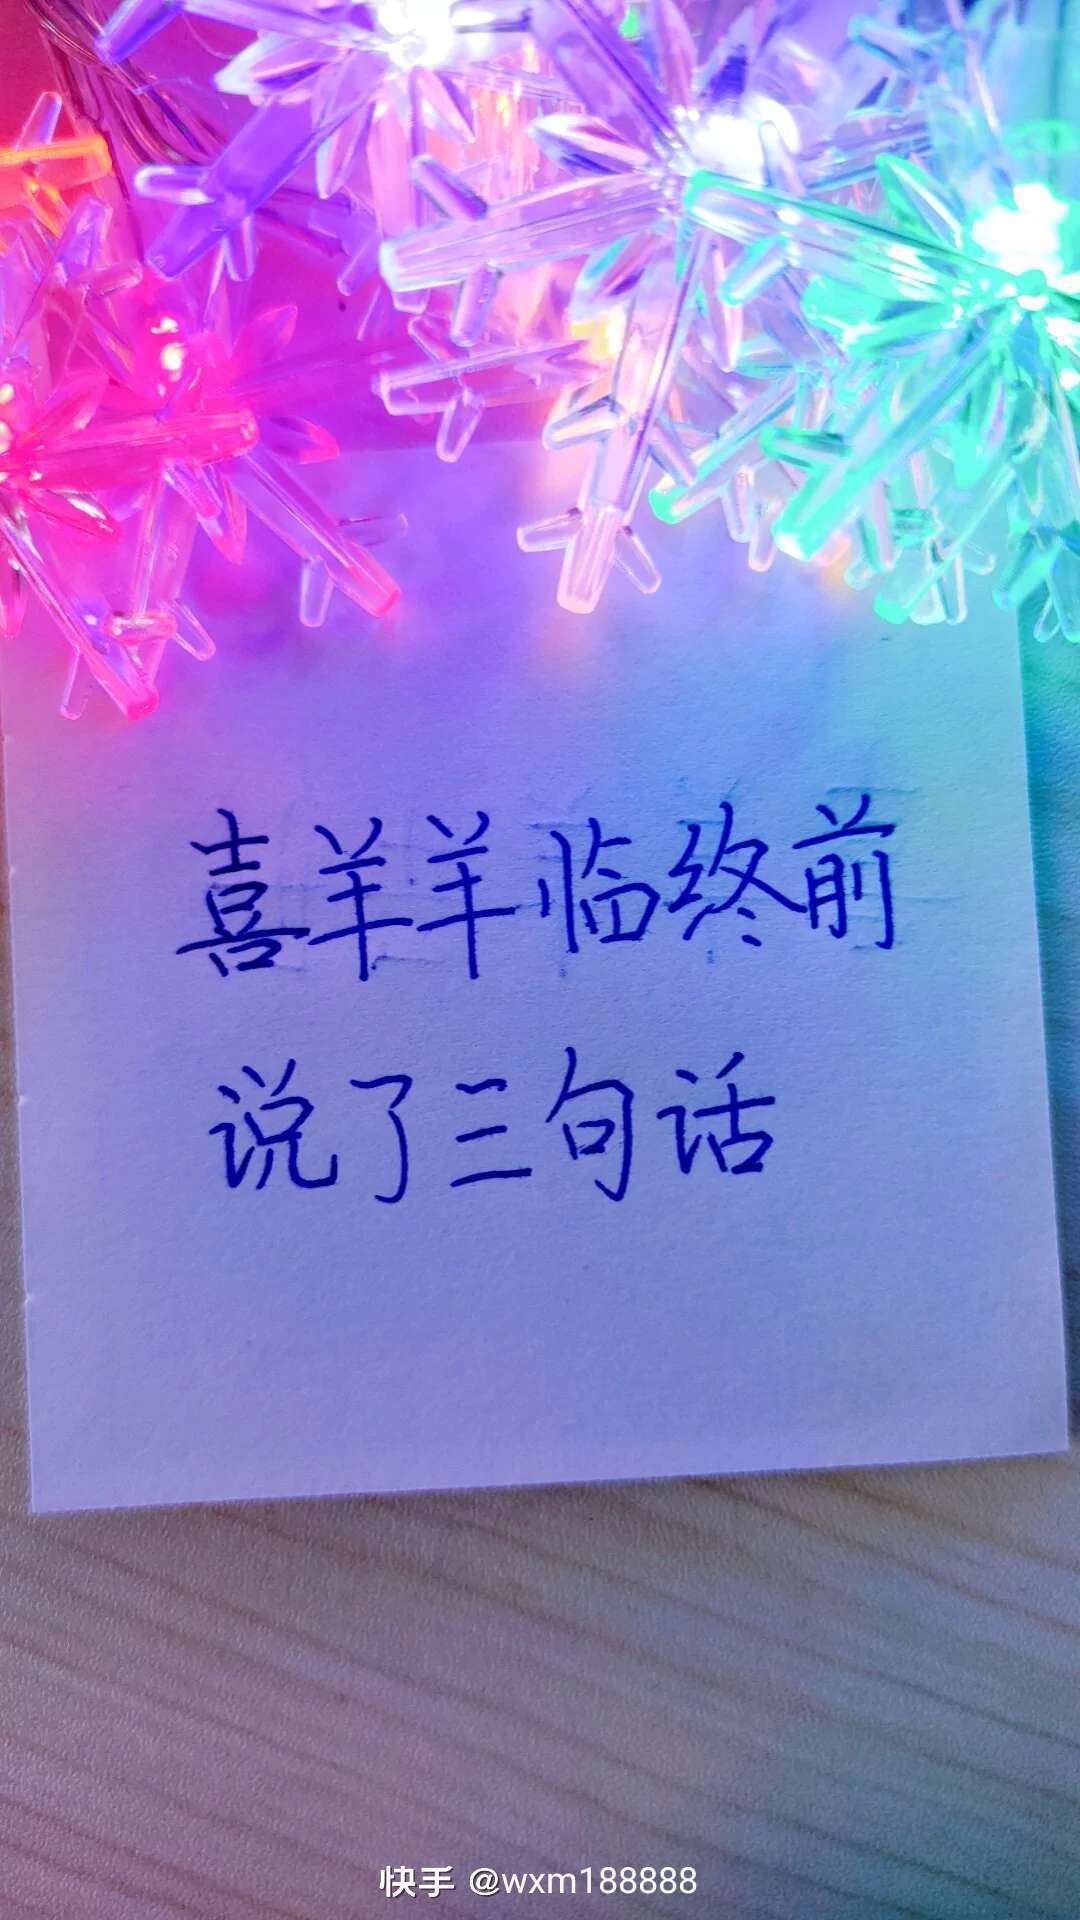 喜羊羊临终前
说了三句话
快手 @wxm188888